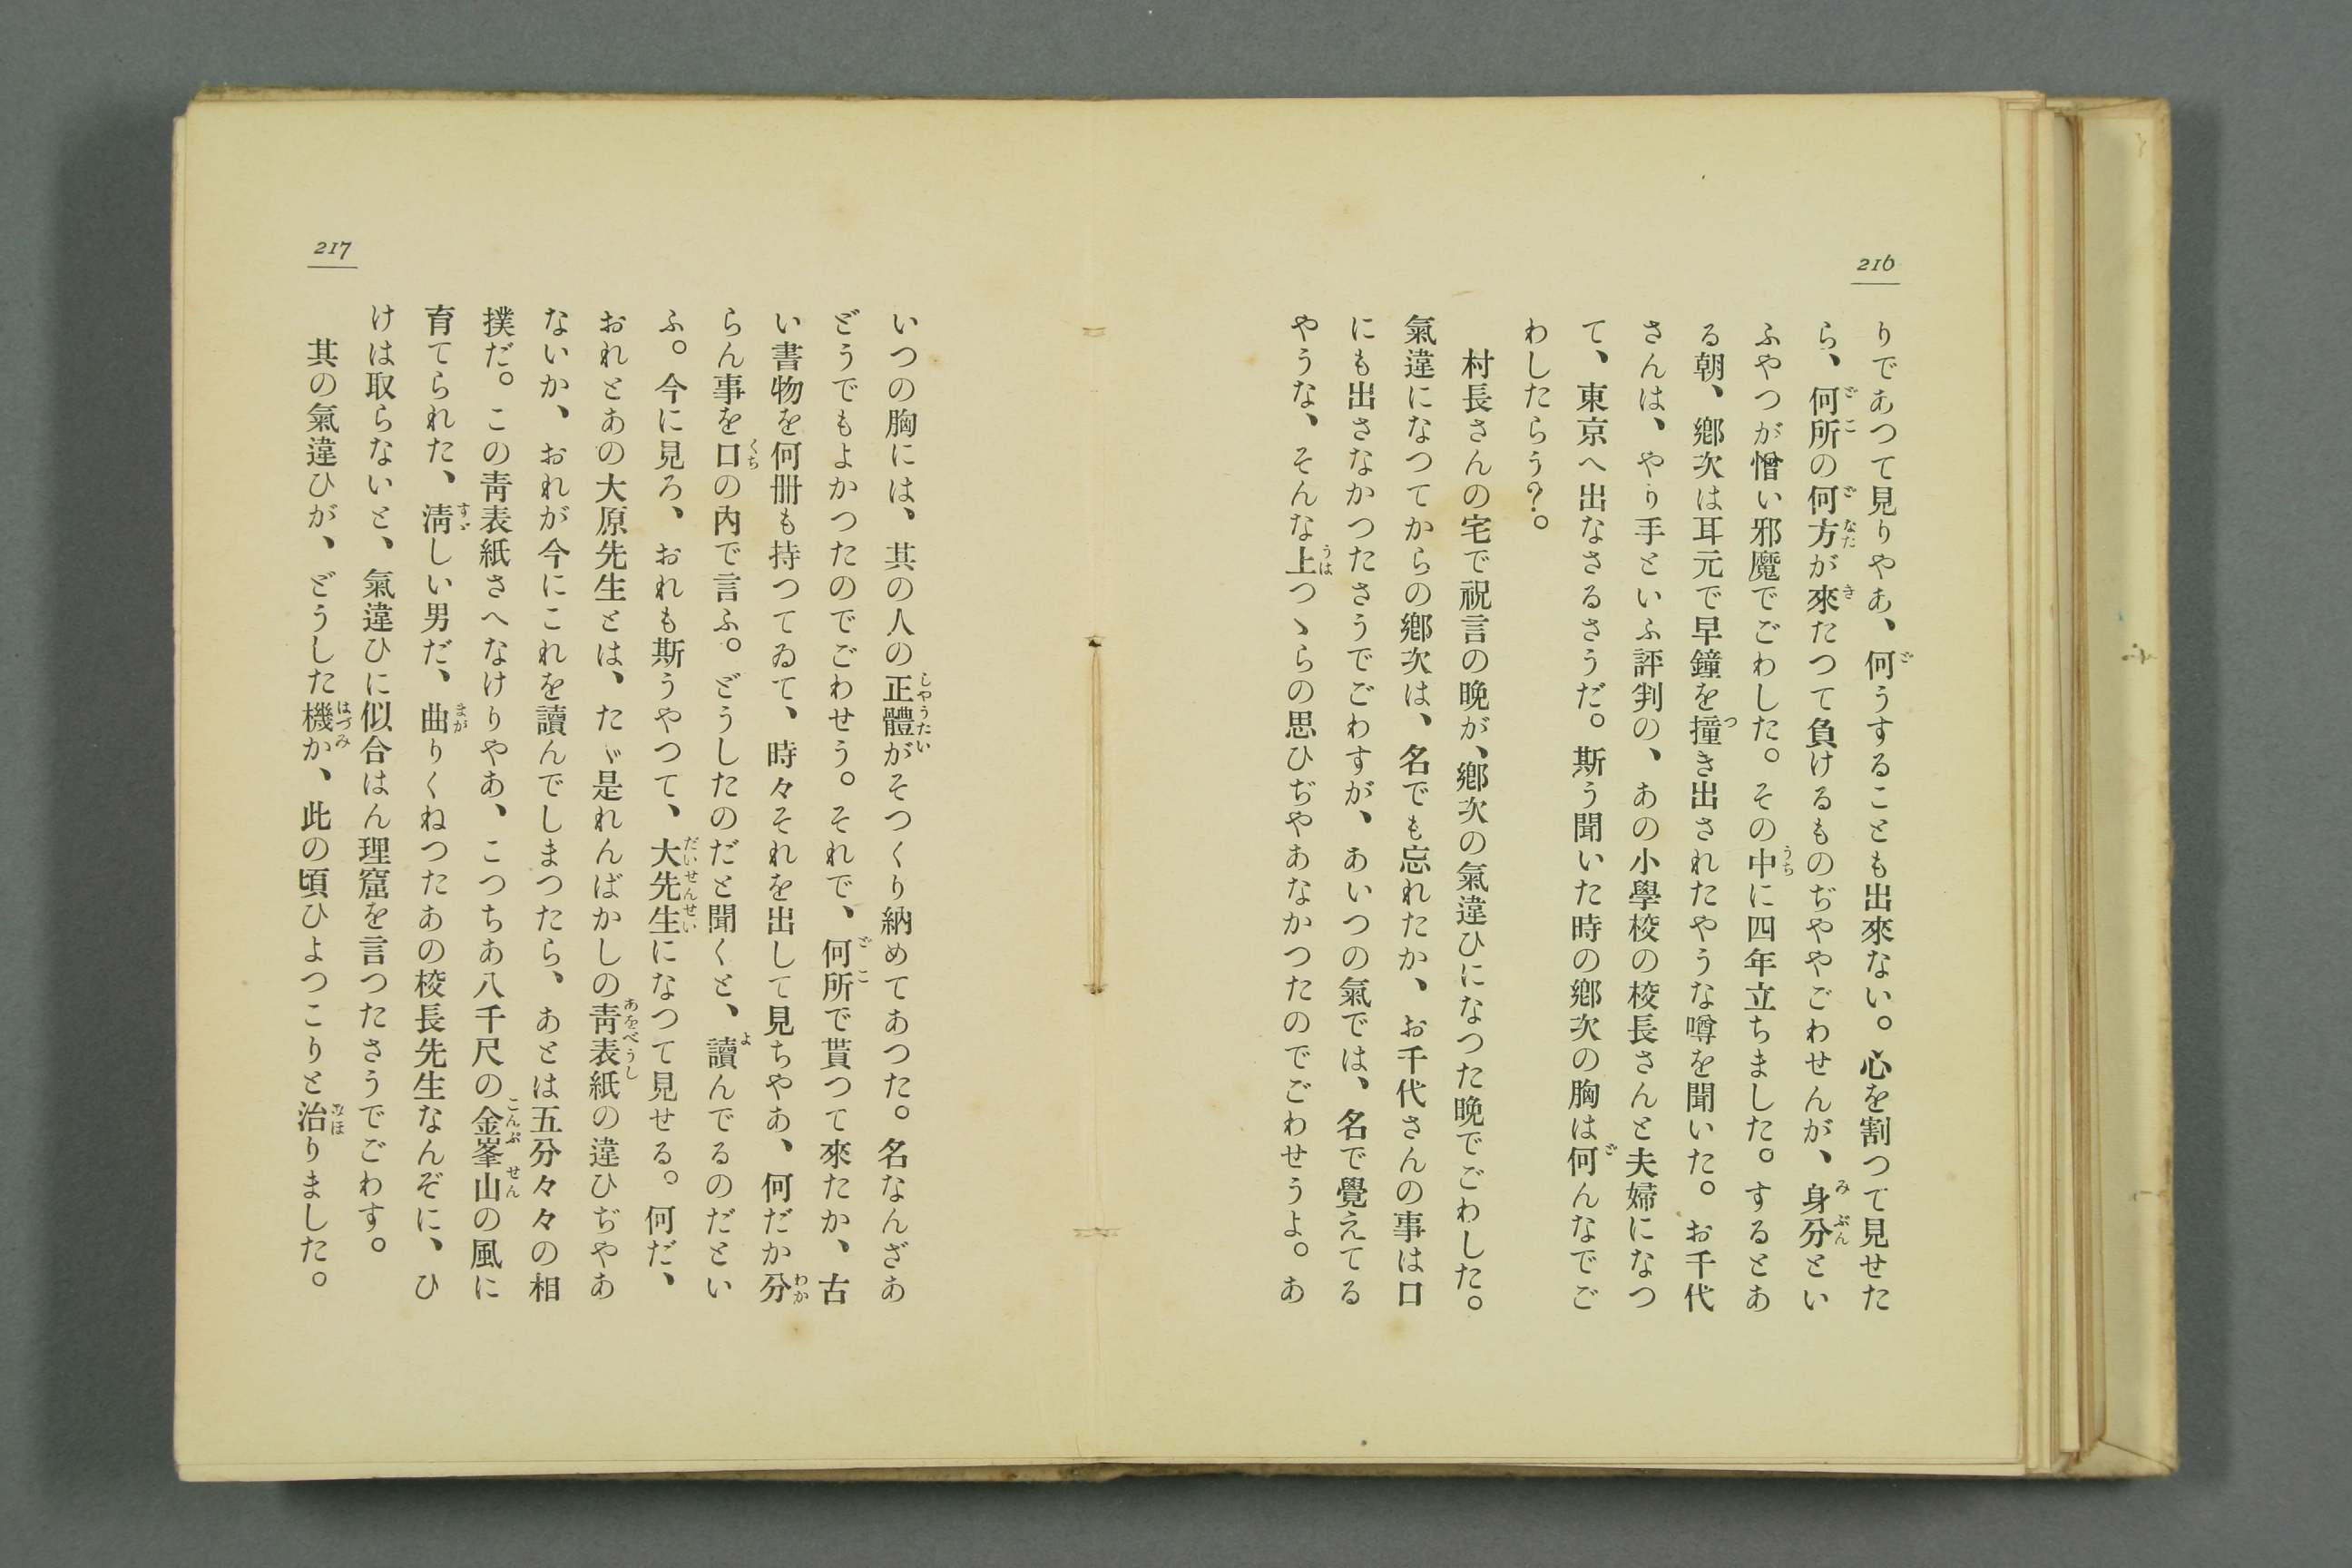 216
りであつて見りやあ、何うすることも出來ない。心を割つて見せた
ら、何所の何方が來たつて負けるものぢややごわせんが、身分とい
ふやつが憎い邪魔でごわした。その中に四年立ちました。するとあ
る朝、鄕次は耳元で早鐘を撞き出されたやうな噂を聞いた。お千代
さんは、やり手といふ評判の、あの小學校の校長さんと夫婦になつ
て、東京へ出なさるさうだ。斯う聞いた時の鄕次の胸は何んなでご
わしたらう?。
村長さんの宅で祝言の晩が、鄕次の氣違ひになつた晩でごわした。
氣違になつてからの鄕次は、名でも忘れたか、お千代さんの事は口
にも出さなかつたさうでごわすが、あいつの氣では、名で覺えてる
やうな、そんな上つゝらの思ひぢやあなかつたのでごわせうよ。あ
217
いつの胸には、其の人の正體がそつくり納めてあつた。名なんざあ
どうでもよかつたのでごわせう。それで、何所で貰つて來たか、古
い書物を何冊も持つてゐて、時々それを出して見ちやあ、何だか分
らん事を口の內で言ふ。どうしたのだと聞くと、讀んでるのだとい
ふ。今に見ろ、おれも斯うやつて、大先生になつて見せる。何だ、
おれとあの大原先生とは、たゞ是れんばかしの靑表紙の違ひぢやあ
ないか、おれが今にこれを讀んでしまつたら、あとは五分々々の相
撲だ。この靑表紙さへなけりやあ、こつちあ八千尺の金峯山の風に
育てられた、淸しい男だ、曲りくねつたあの校長先生なんぞに、ひ
けは取らないと、氣違ひに似合はん理窟を言つたさうでごわす。
其の氣違ひが、どうした機か、此の頃ひよつこりと治りました。